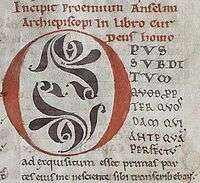 Incipit Proemium Anselmi
Archiepiscopi in libro cur
deus homo
OPUS
SUBDI
TUM
TER QUOS
DAM QUI
ANTEQUA
PERFECTU
ad exquisitum esse primas par
tes eius me nesciente sibi transcribebant